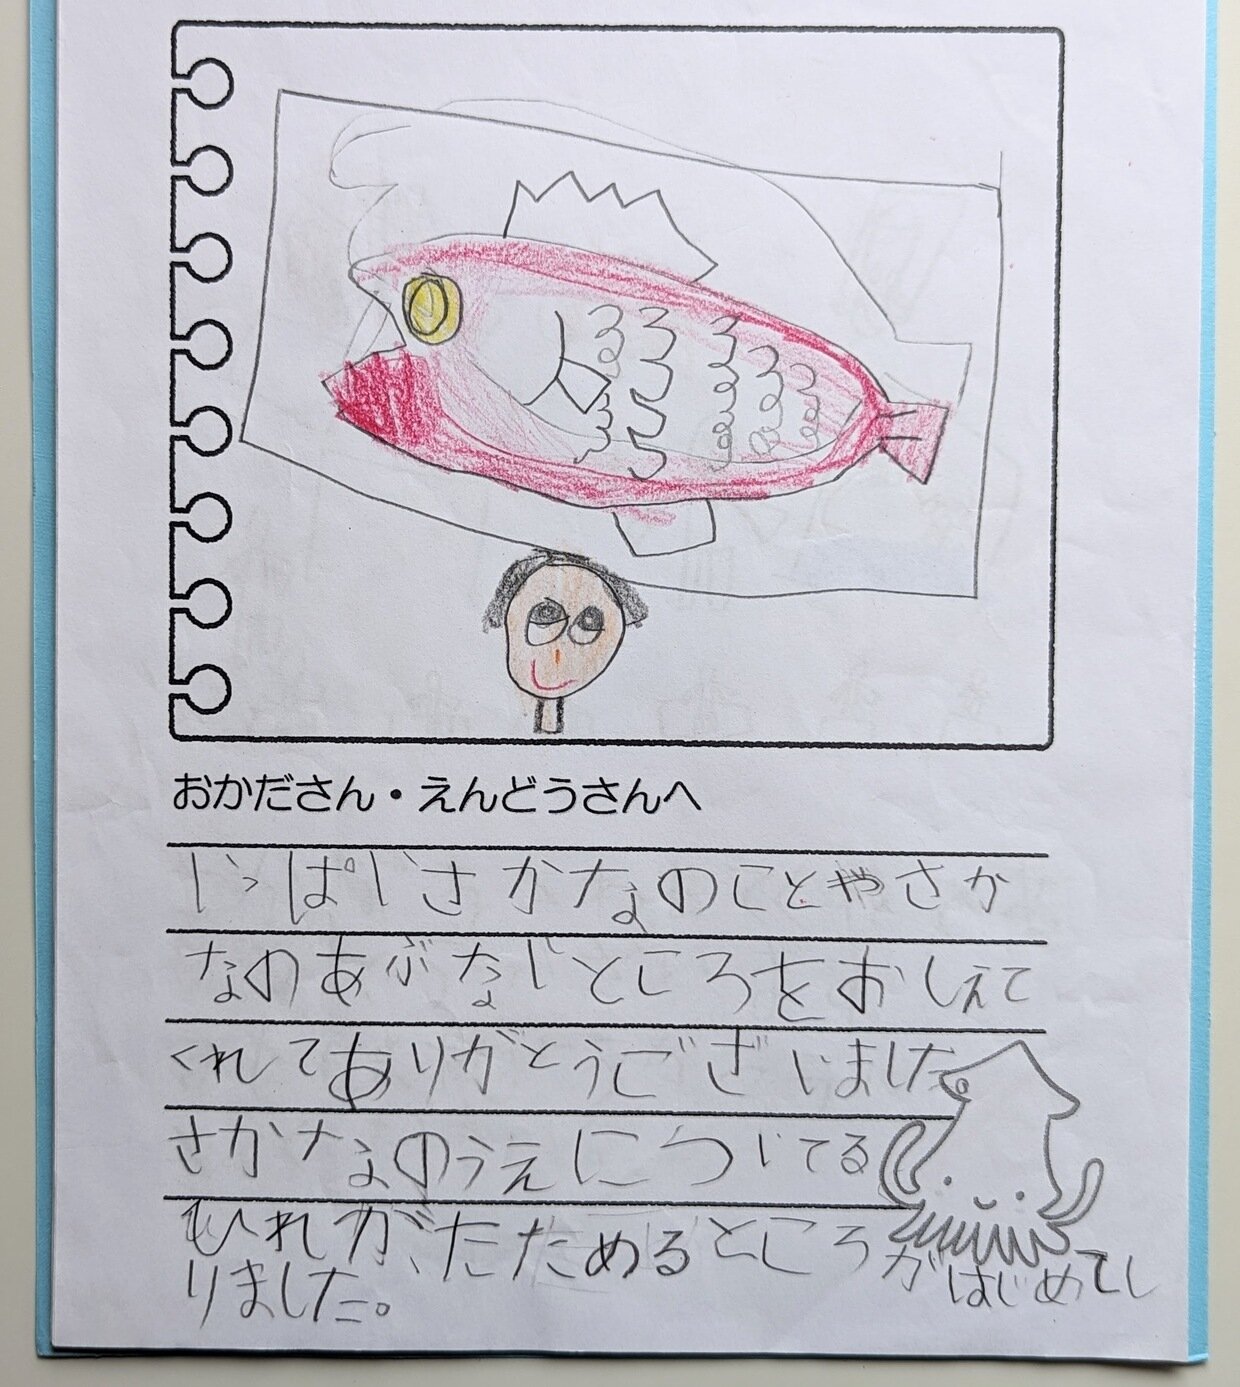 おかださん・えんどうさんへ
いっぱいさかなのことやさか
なのあぶないところをおしえて
くれてありがとうございました
さかなのうえについてる
ひれが、たためるところがはじめてし
りました。